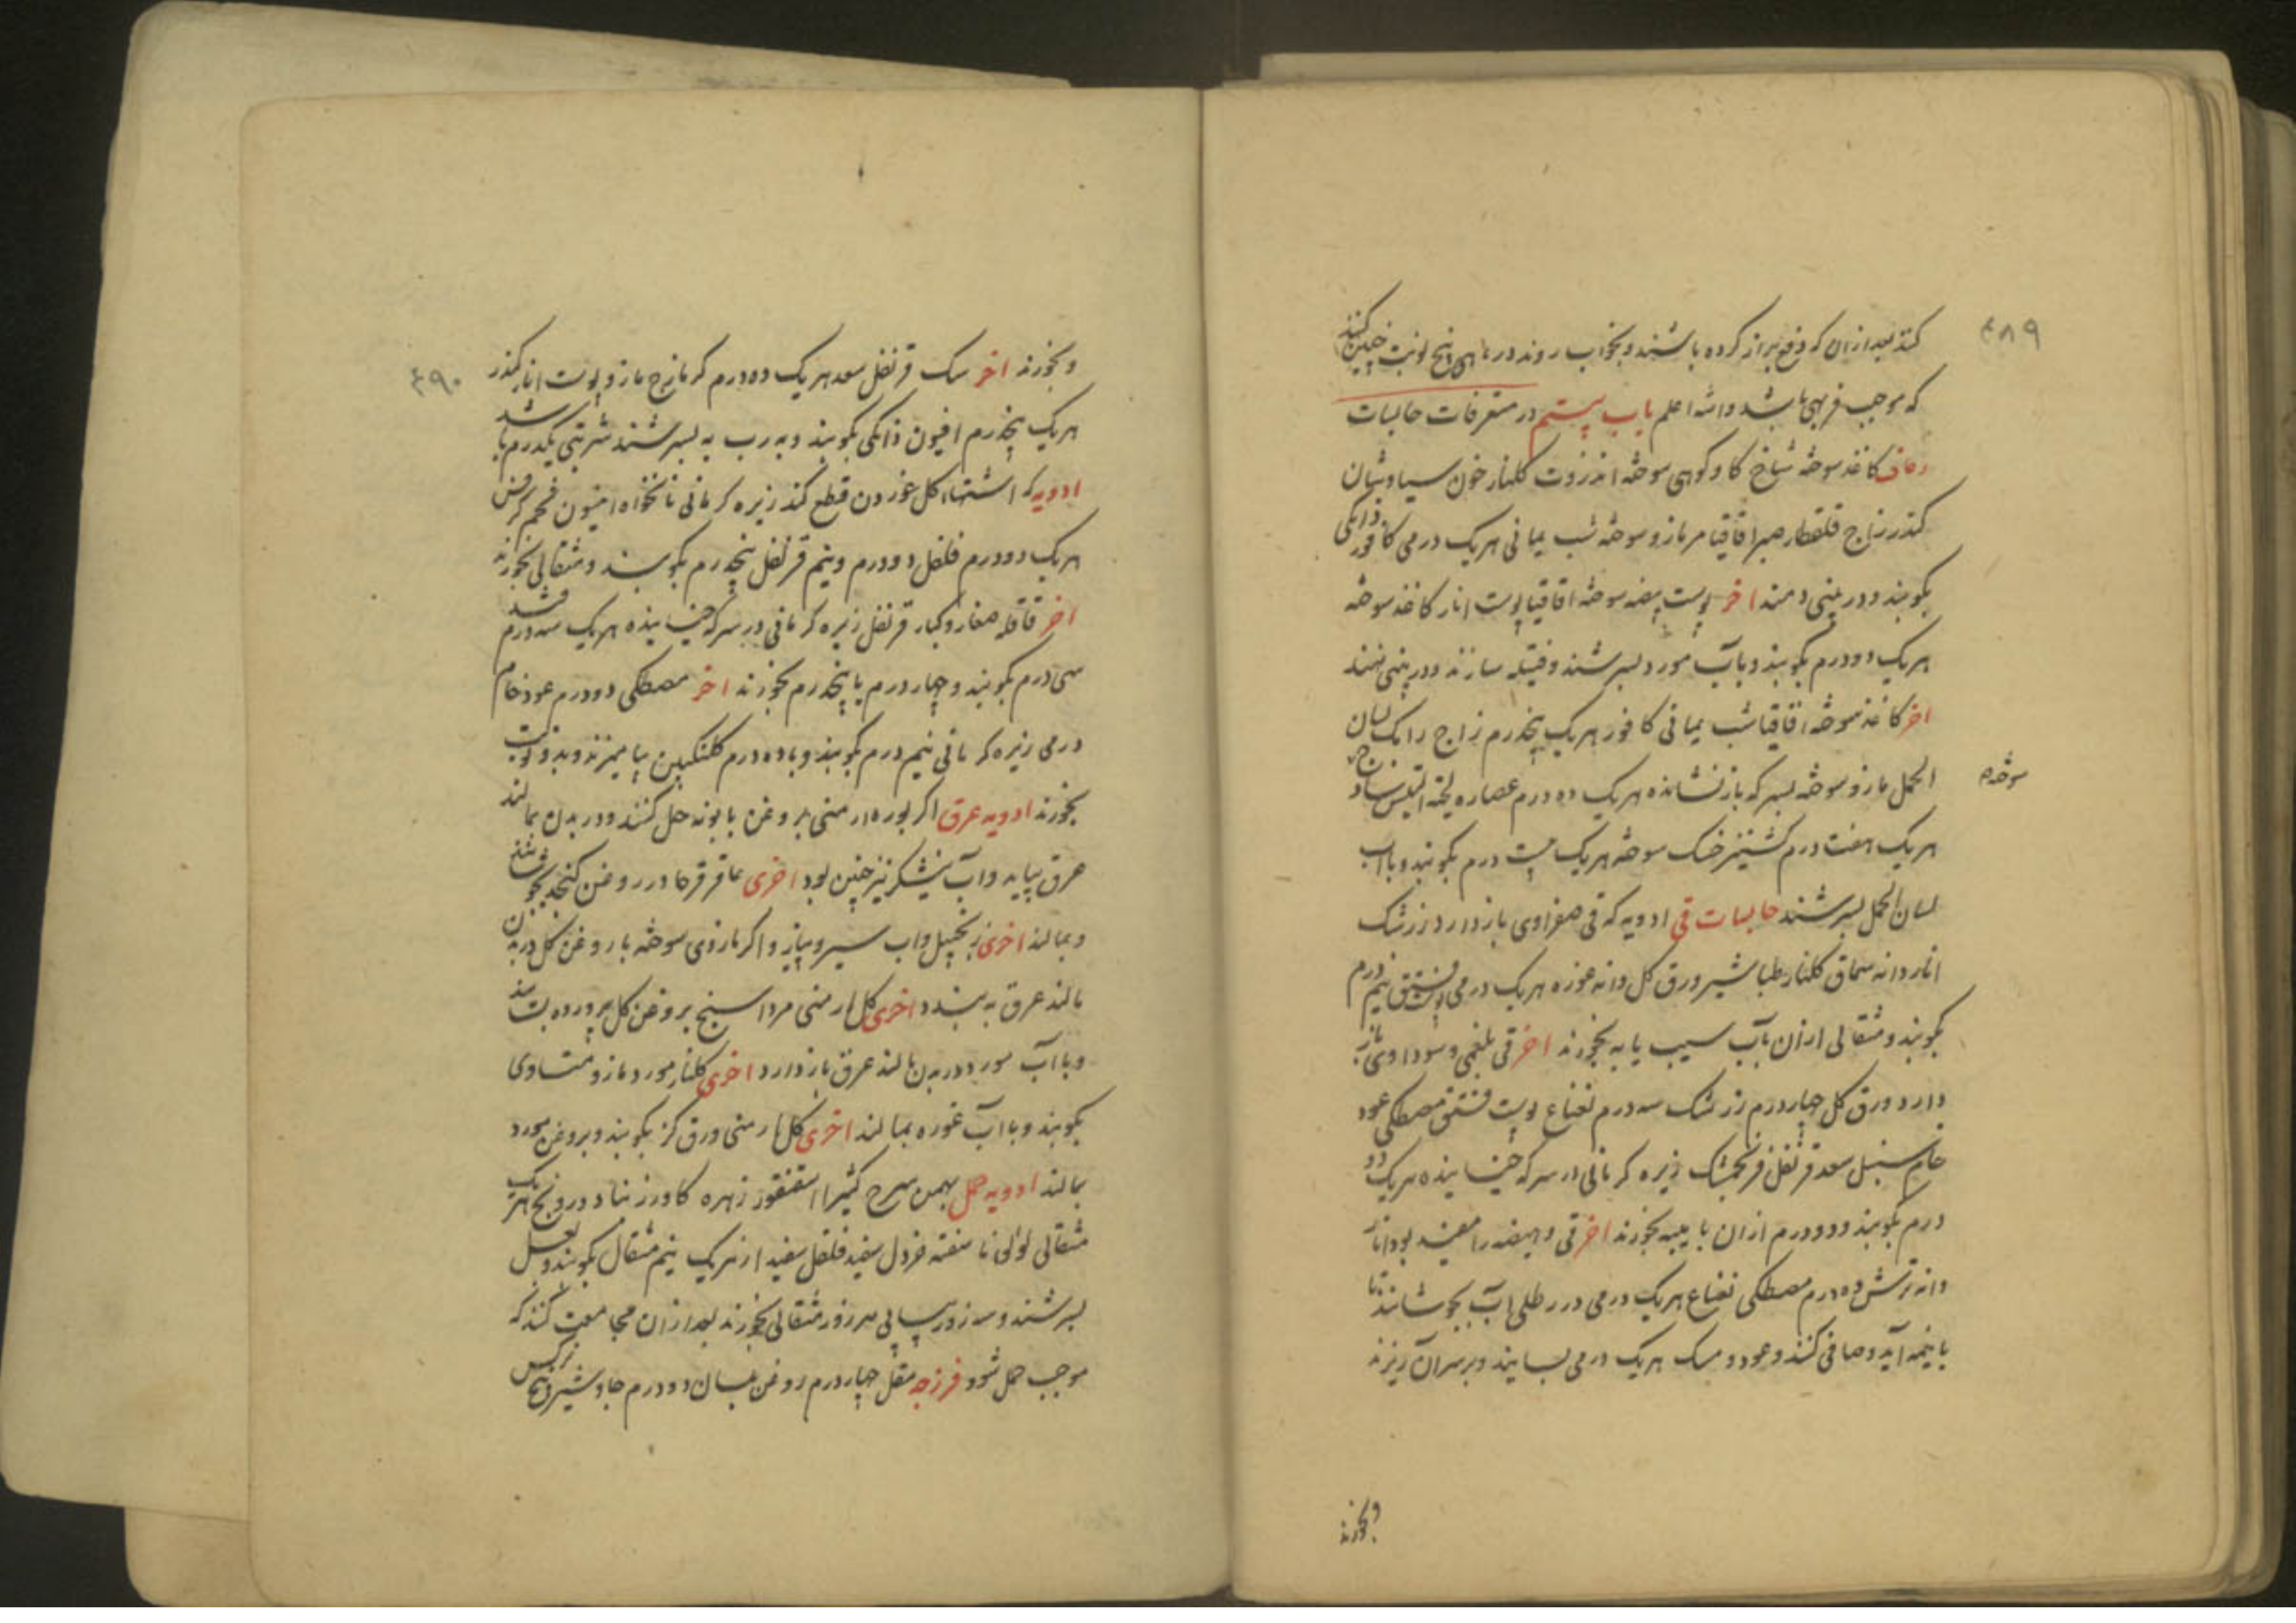 ۴۸۹
کنند بعد ازان که دفع براز کرده باشند و بخواب روند در ماهی پنج نوبت چنین کنند
که موجب فربهی باشد والله اعلم باب بیستم در متفرقات حابسات
رعاف کاغذ سوخته شاخ کاو کوهی سوخته انزروت کلنار خون سیاوشان
کندر زاج قلقطار صبر اقاقیا مر مازو سوخته شب یمانی هریک درمی کافور دانکی
بکوبند و در بینی دمند اخر پوست بیضه سوخته اقاقیا پوست انار کاغذ سوخته
هریک دودرم بکوبند و بآب مورد بسرشند و فتیله سازند و در بینی نهند
اخر کاغذ سوخته اقاقیا شب یمانی کافور هریک پنجدرم زاج رامک لسان
الحمل مازو سوخته بسرکه بازنشانده هریک ده درم عصاره لحیة التیس
سوخته
هریک هفت درم کشنیز خشک سوخته هریک بیست درم بکوبند و باب
لسان الحمل بسرشند حابسات قی ادویه که قی صفراوی بازدارد زرشک
اناردانه سماق کلنار طباشیر ورق کل دانه غوره هریک درمی پوست فستق نیم درم
بکوبند و مثقالی ازان بآب سیب یا به بخورند اخر قی بلغمی و سوداوی باز
دارد ورق کل چهاردرم زرشک سه درم نعناع پوست فستق مصطکی عود
خام سنبل سعد قرنفل فرنجمشک زیره کرمانی در سرکه خیسانیده هریک دو
درم بکوبند و دودرم ازان با میبه بخورند اخر قی و هیضه را مفید بود انار
دانه ترش ده درم مصطکی نعناع هریک درمی در رطلی آب بجوشانند تا
با نیمه آید و صافی کنند و عود و مسک هریک درمی بسایند و بر سر آن ریزند
و بخورند
۴۹۰
و بخورند اخر سک قرنفل سعد هریک ده درم کرمازج مازو پوست انار کندر
هریک پنجدرم افیون دانکی بکوبند و به رب به بسرشند شربتی یکدرم باشد
ادویه که اشتهاء کل خوردن قطع کند زیره کرمانی نانخواه انیسون تخم کرفس
هریک دودرم فلفل دودرم و نیم قرنفل پنجدرم بکوبند و مثقالی بخورند
اخر قاقله صغار و کبار قرنفل زیره کرمانی در سرکه خیسانیده هریک سه درم قند
سی درم بکوبند و چهاردرم یا پنجدرم بخورند اخر مصطکی دودرم عود خام
درمی زیره کرمانی نیم درم بکوبند و با ده درم کلنکبین بیامیزند و بدو نوبت
بخورند ادویه عرق اکر بوره ارمنی بروغن بابونه حل کنند و در بدن بمالند
عرق بیاید و آب نیشکر نیز چنین بود اخری عاقرقرحا در روغن کنجد بجوشانند
و بمالند اخری زنجبیل و اب سیر و پیاز و اکر مازوی سوخته با روغن کل در بدن
مالند عرق به بندد اخری کل ارمنی مرداسنج بروغن کل پرورده بسایند
و باآب مورد در بدن مالند عرق بازدارد اخری کلنار مورد مازو متساوی
بکوبند و باآب غوره بمالند اخری کل ارمنی ورق کز بکوبند و بروغن مورد
بمالند ادویه حمل بهمن سرخ کثیرا اسقنقور زهره کاو زرنباد درونج هریک
مثقالی لؤلؤی ناسفته خردل سفید فلفل سفید از هریک نیم مثقال بکوبند و بعسل
بسرشند و سه روز پیاپی هر روز مثقالی بخورند بعد ازان مجامعت کنند که
موجب حمل شود فرزجه مقل چهاردرم روغن بلسان دودرم جاوشیر و بیخ نرکس